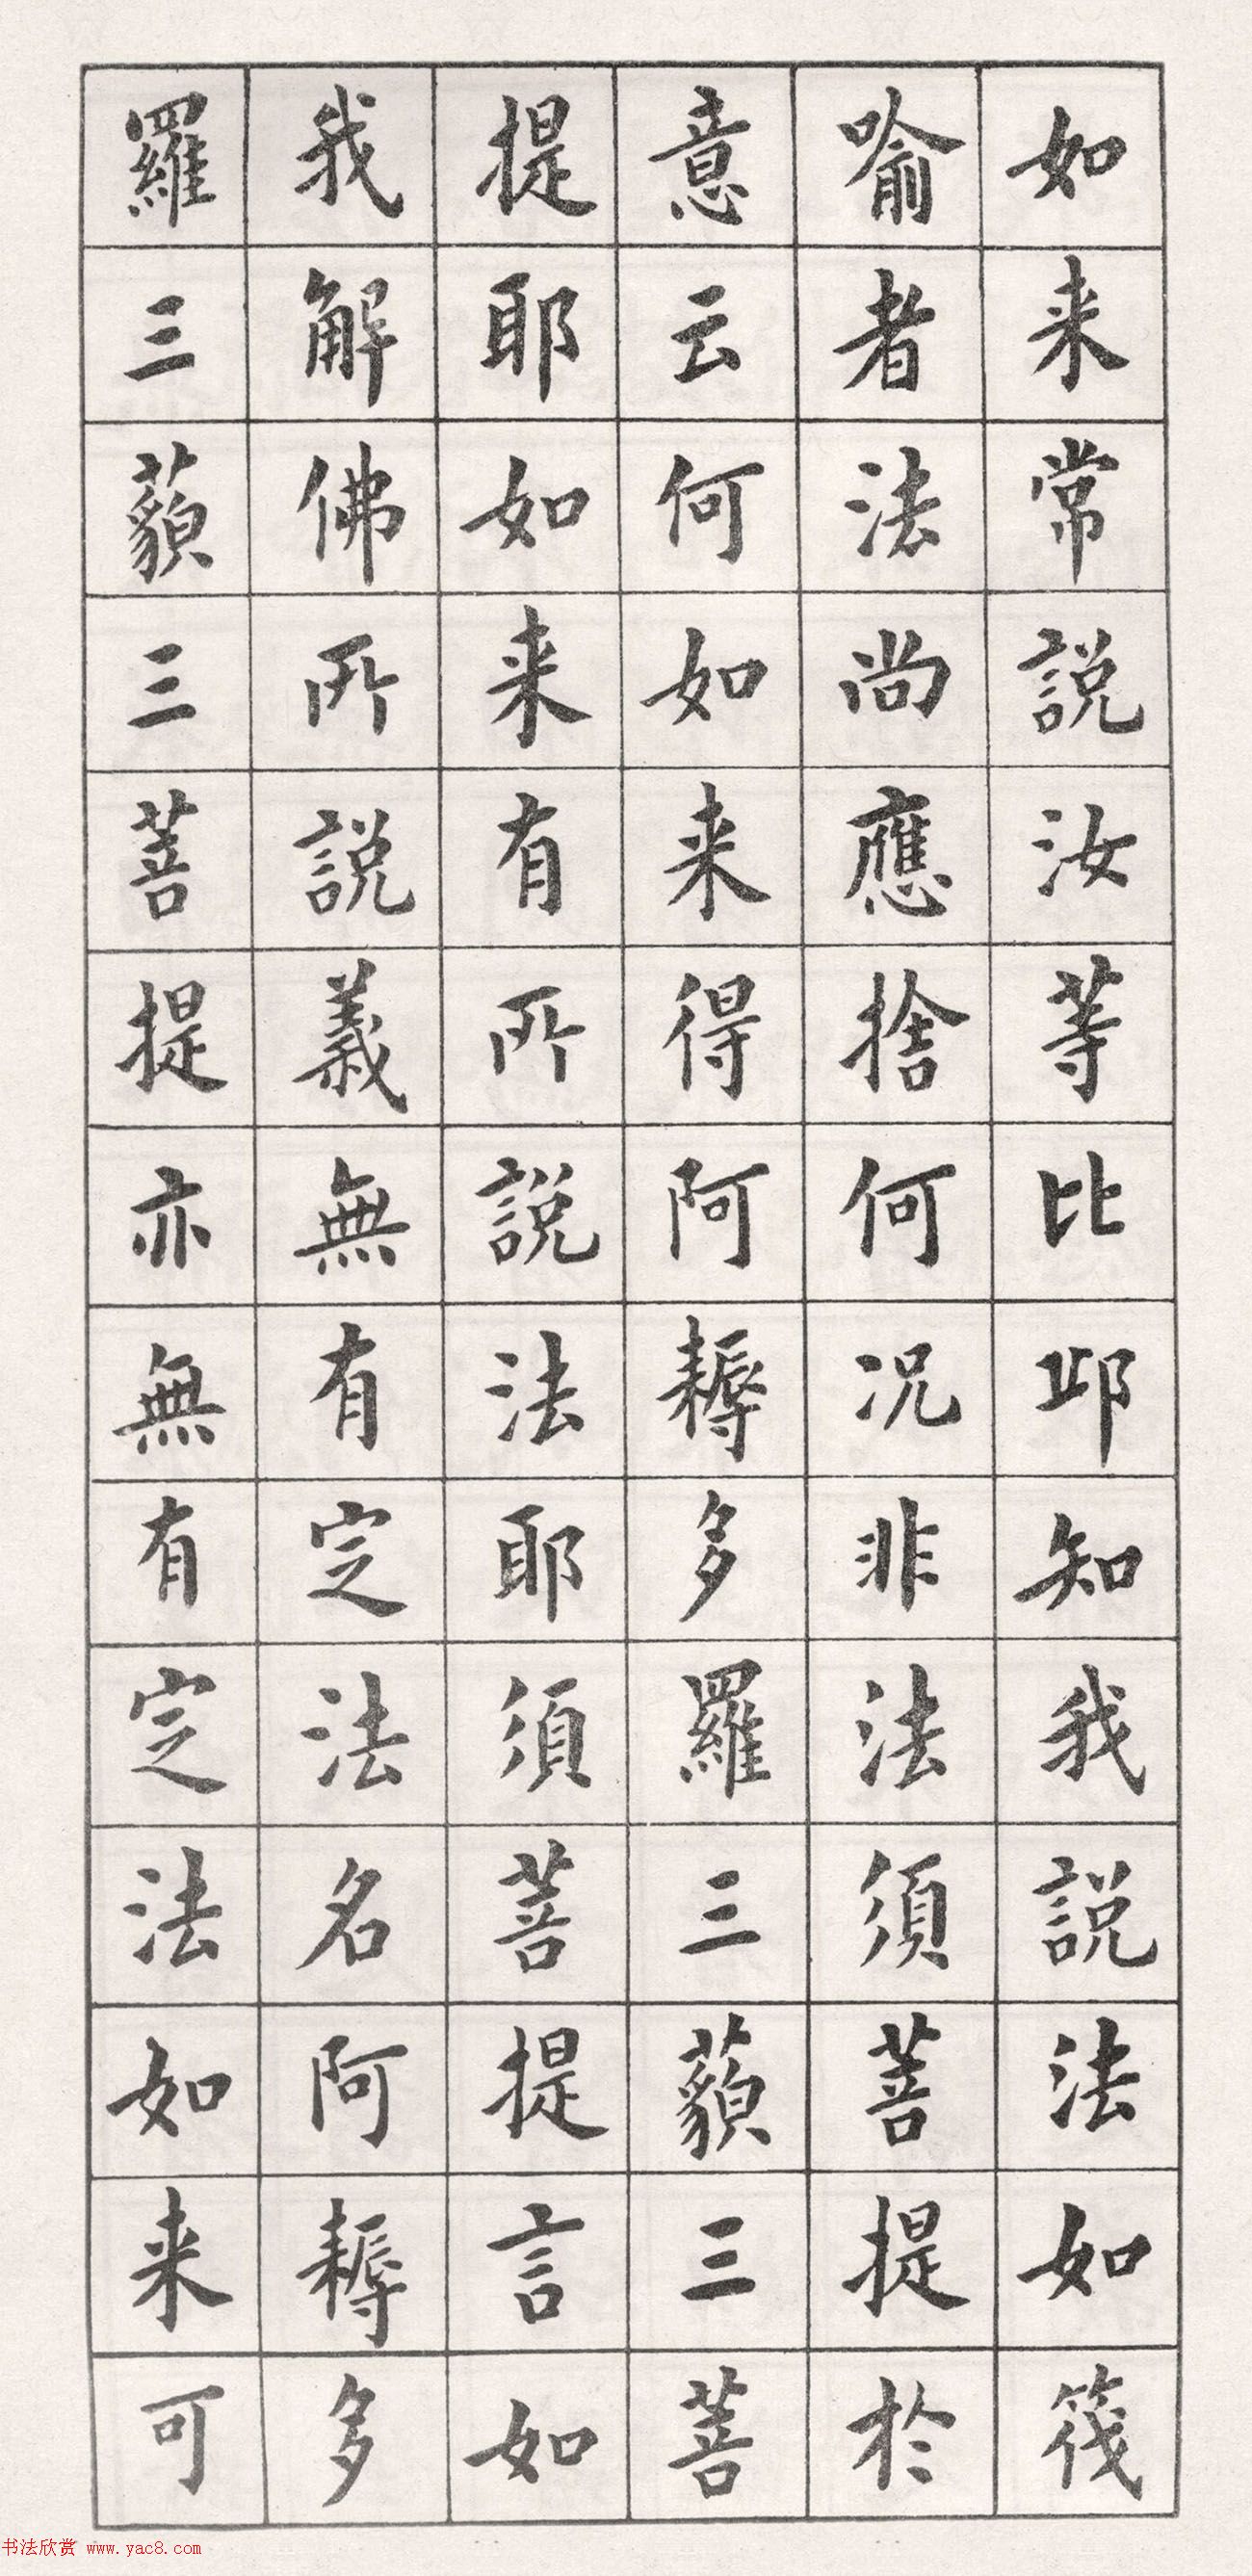 如来常說汝等比邱知我說法如筏
喻者法尚應捨何况非法須菩提於
意云何如来得阿耨多羅三藐三菩
提耶如来有所說法耶須菩提言如
我解佛所說義無有定法名阿耨多
羅三藐三菩提亦無有定法如来可
书法欣赏 www.yac8.com